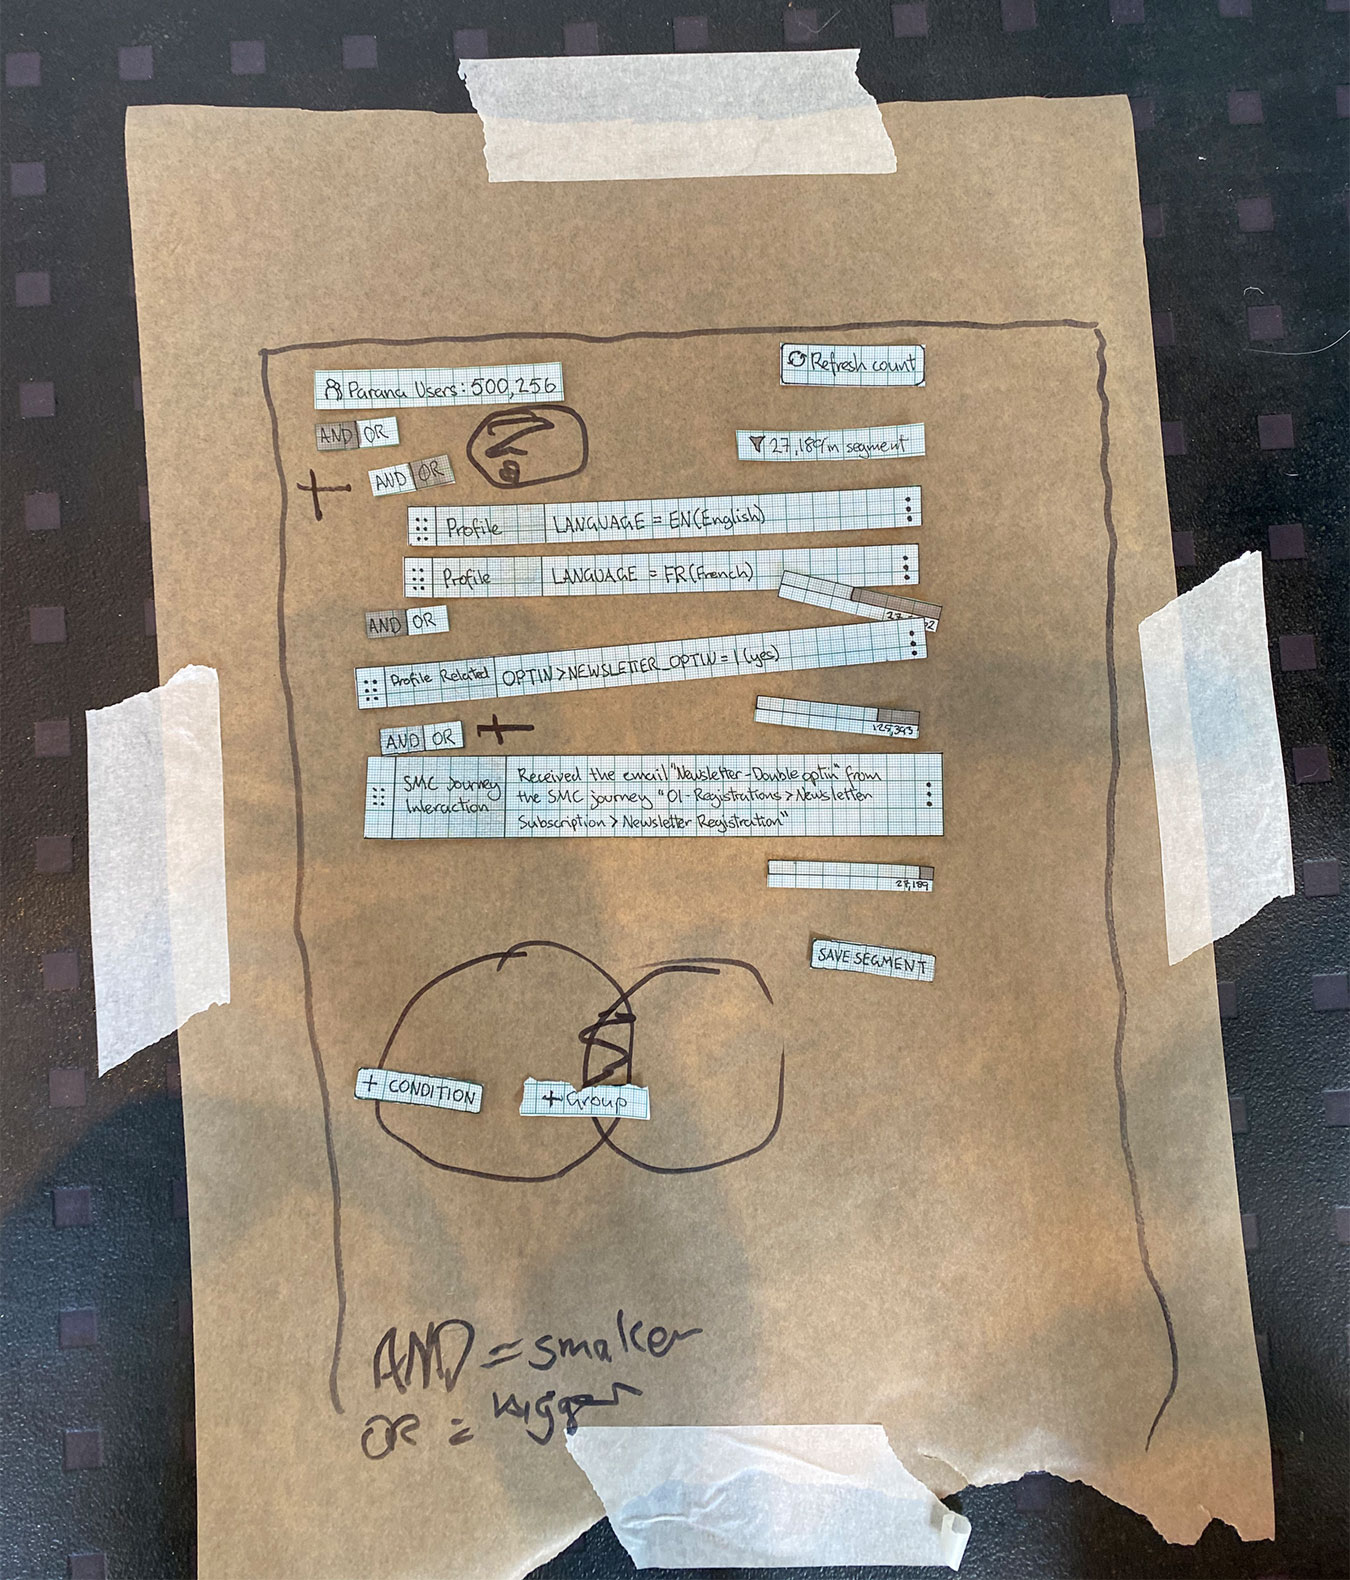 Parana Users: 500,256
Refresh count
AND OR
?
27,189 in segment
+
AND OR
Profile LANGUAGE = EN(English)
Profile LANGUAGE = FR(French)
AND OR
Profile Related OPTIN>NEWSLETTER_OPTIN = 1 (yes)
AND OR +
125,393
SMC Journey Interaction
Received the email "Newsletter-Double optin" from
the SMC journey "01-Registrations > Newsletter
Subscription > Newsletter Registration"
27,189
SAVE SEGMENT
+ CONDITION
+ Group
AND = smaller
OR = bigger